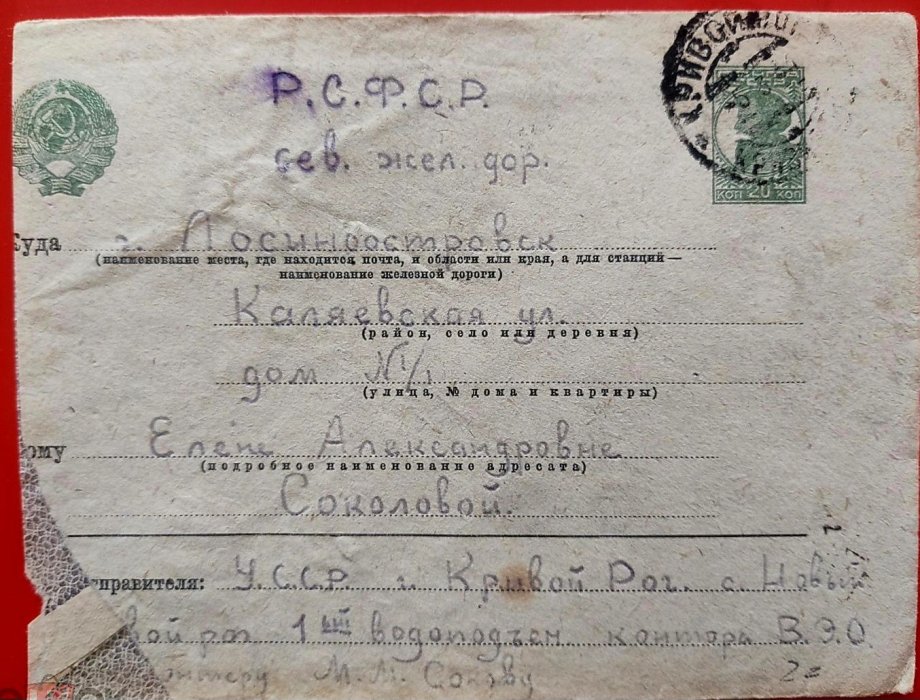 КРИВОЙ
Р.С.Ф.С.Р.
сев. жел. дор.
КОП 20 КОП
Куда г. Лосиноостровск
(наименование места, где находится почта, и области или края, а для станций—
наименование железной дороги)
Каляевская ул.
(район, село или деревня)
дом № 1/1
(улица, № дома и квартиры)
ому Елене Александровне
(подробное наименование адресата)
Соколовой.
правителя: У.С.С.Р. г. Кривой Рог. с. Новый
вой рог 1ый водоподъем контора В.Э.О
М.М.